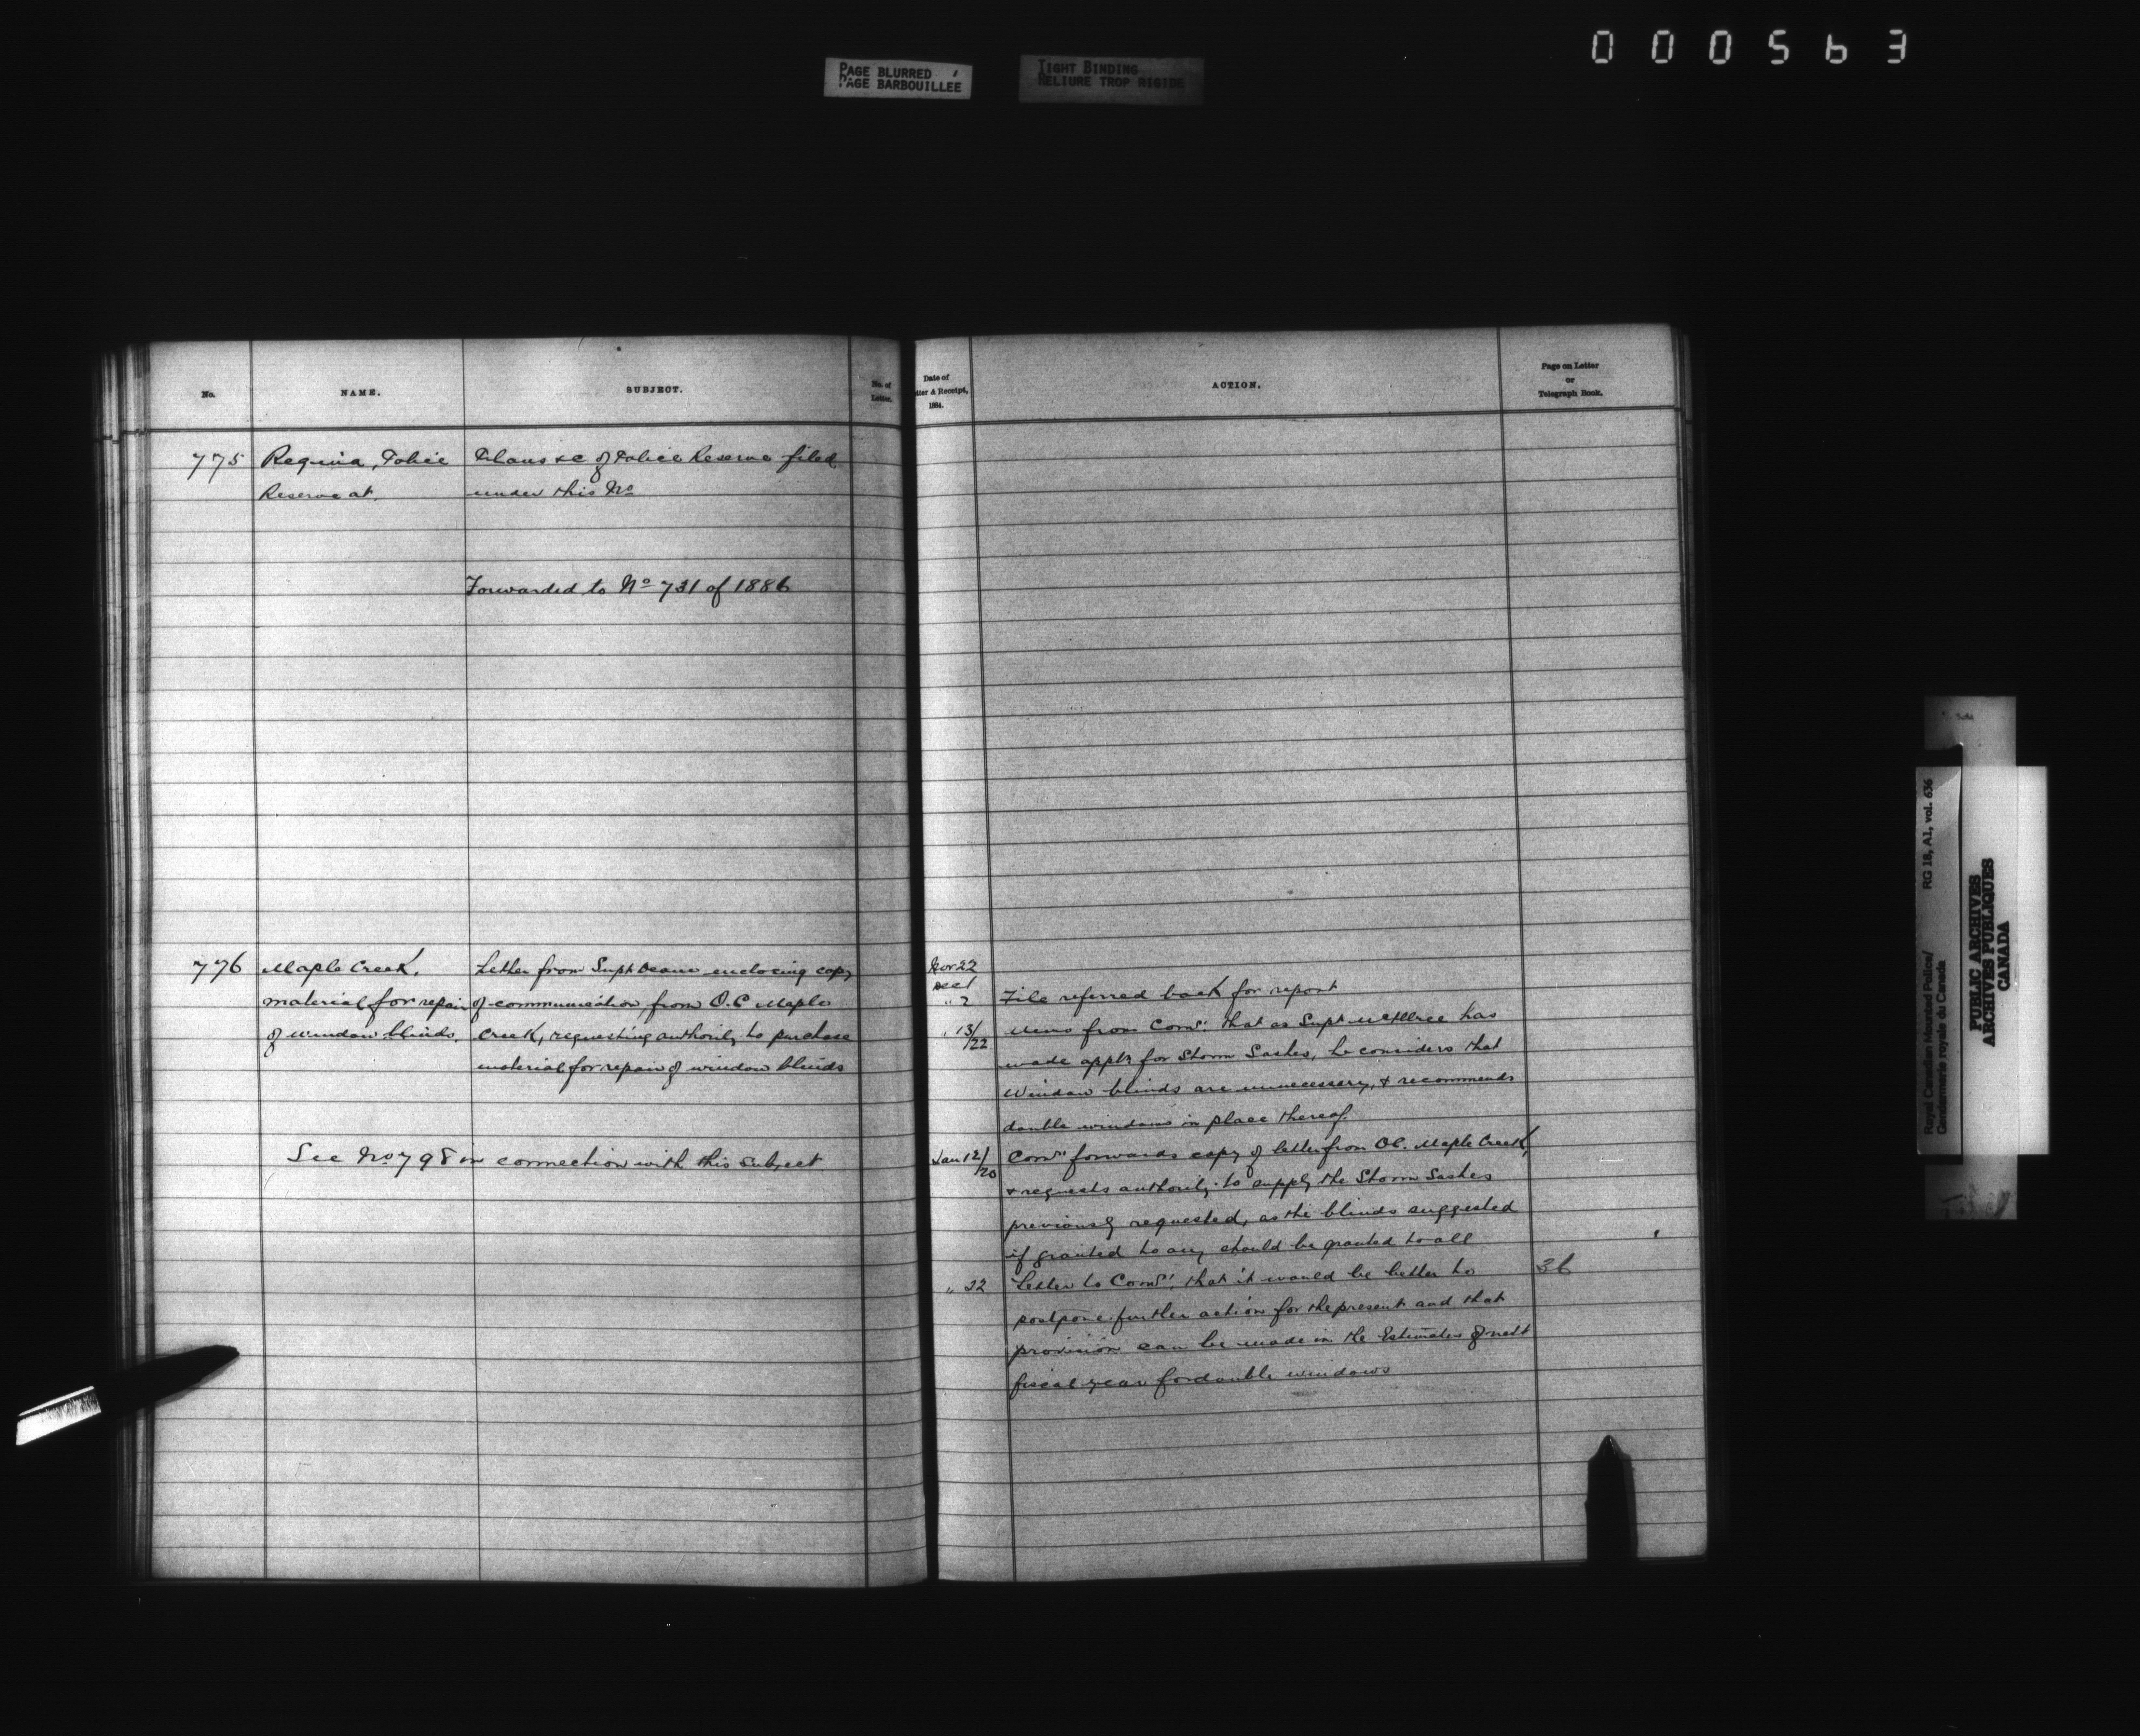 000563
PAGE BLURRED
PAGE BARBOUILLÉE
TIGHT BINDING
RELIURE TROP RIGIDE
No.
NAME.
SUBJECT.
No. of
Letter.
775
Regina, Police
Reserve at.
Plans &c of Police Reserve filed
under this No
Forwarded to No 731 of 1886
776
Maple Creek.
material for repair
of window blinds.
Letter from Supt Deane enclosing copy
of communication from O.C Maple
Creek, requesting authority to purchase
material for repair of window blinds
See No 798 in connection with this subject
Date of
tter & Receipt,
1884.
ACTION.
Page on Letter
or
Telegraph Book.
Nov 22
Dec 1
" 2 File referred back for report
" 13/22 Memo from Comr. that as Supt McIllree has
made appln for Storm Sashes, he considers that
Window blinds are unnecessary, & recommends
double windows in place thereof.
Jan 12/20 Comr forwards copy of letter from OC. Maple Creek,
& requests authority to supply the Storm Sashes
previously requested, as the blinds suggested
if granted to any should be granted to all
" 22 Letter to Comr. that it would be better to 36
postpone further action for the present and that
provision can be made in the Estimates of next
fiscal year for double windows
Royal Canadian Mounted Police/ RG 18, A1, vol. 636
Gendarmerie royale du Canada
PUBLIC ARCHIVES
ARCHIVES PUBLIQUES
CANADA